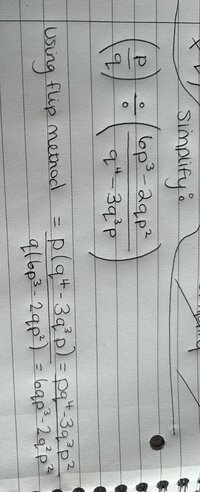 Simplify:
(p/q) ÷ (6p³ - 2qp² / q⁴ - 3q³p)
Using flip method = p(q⁴ - 3q³p) / q(6p³ - 2qp²) = pq⁴ - 3q³p² / 6qp³ - 2q²p²